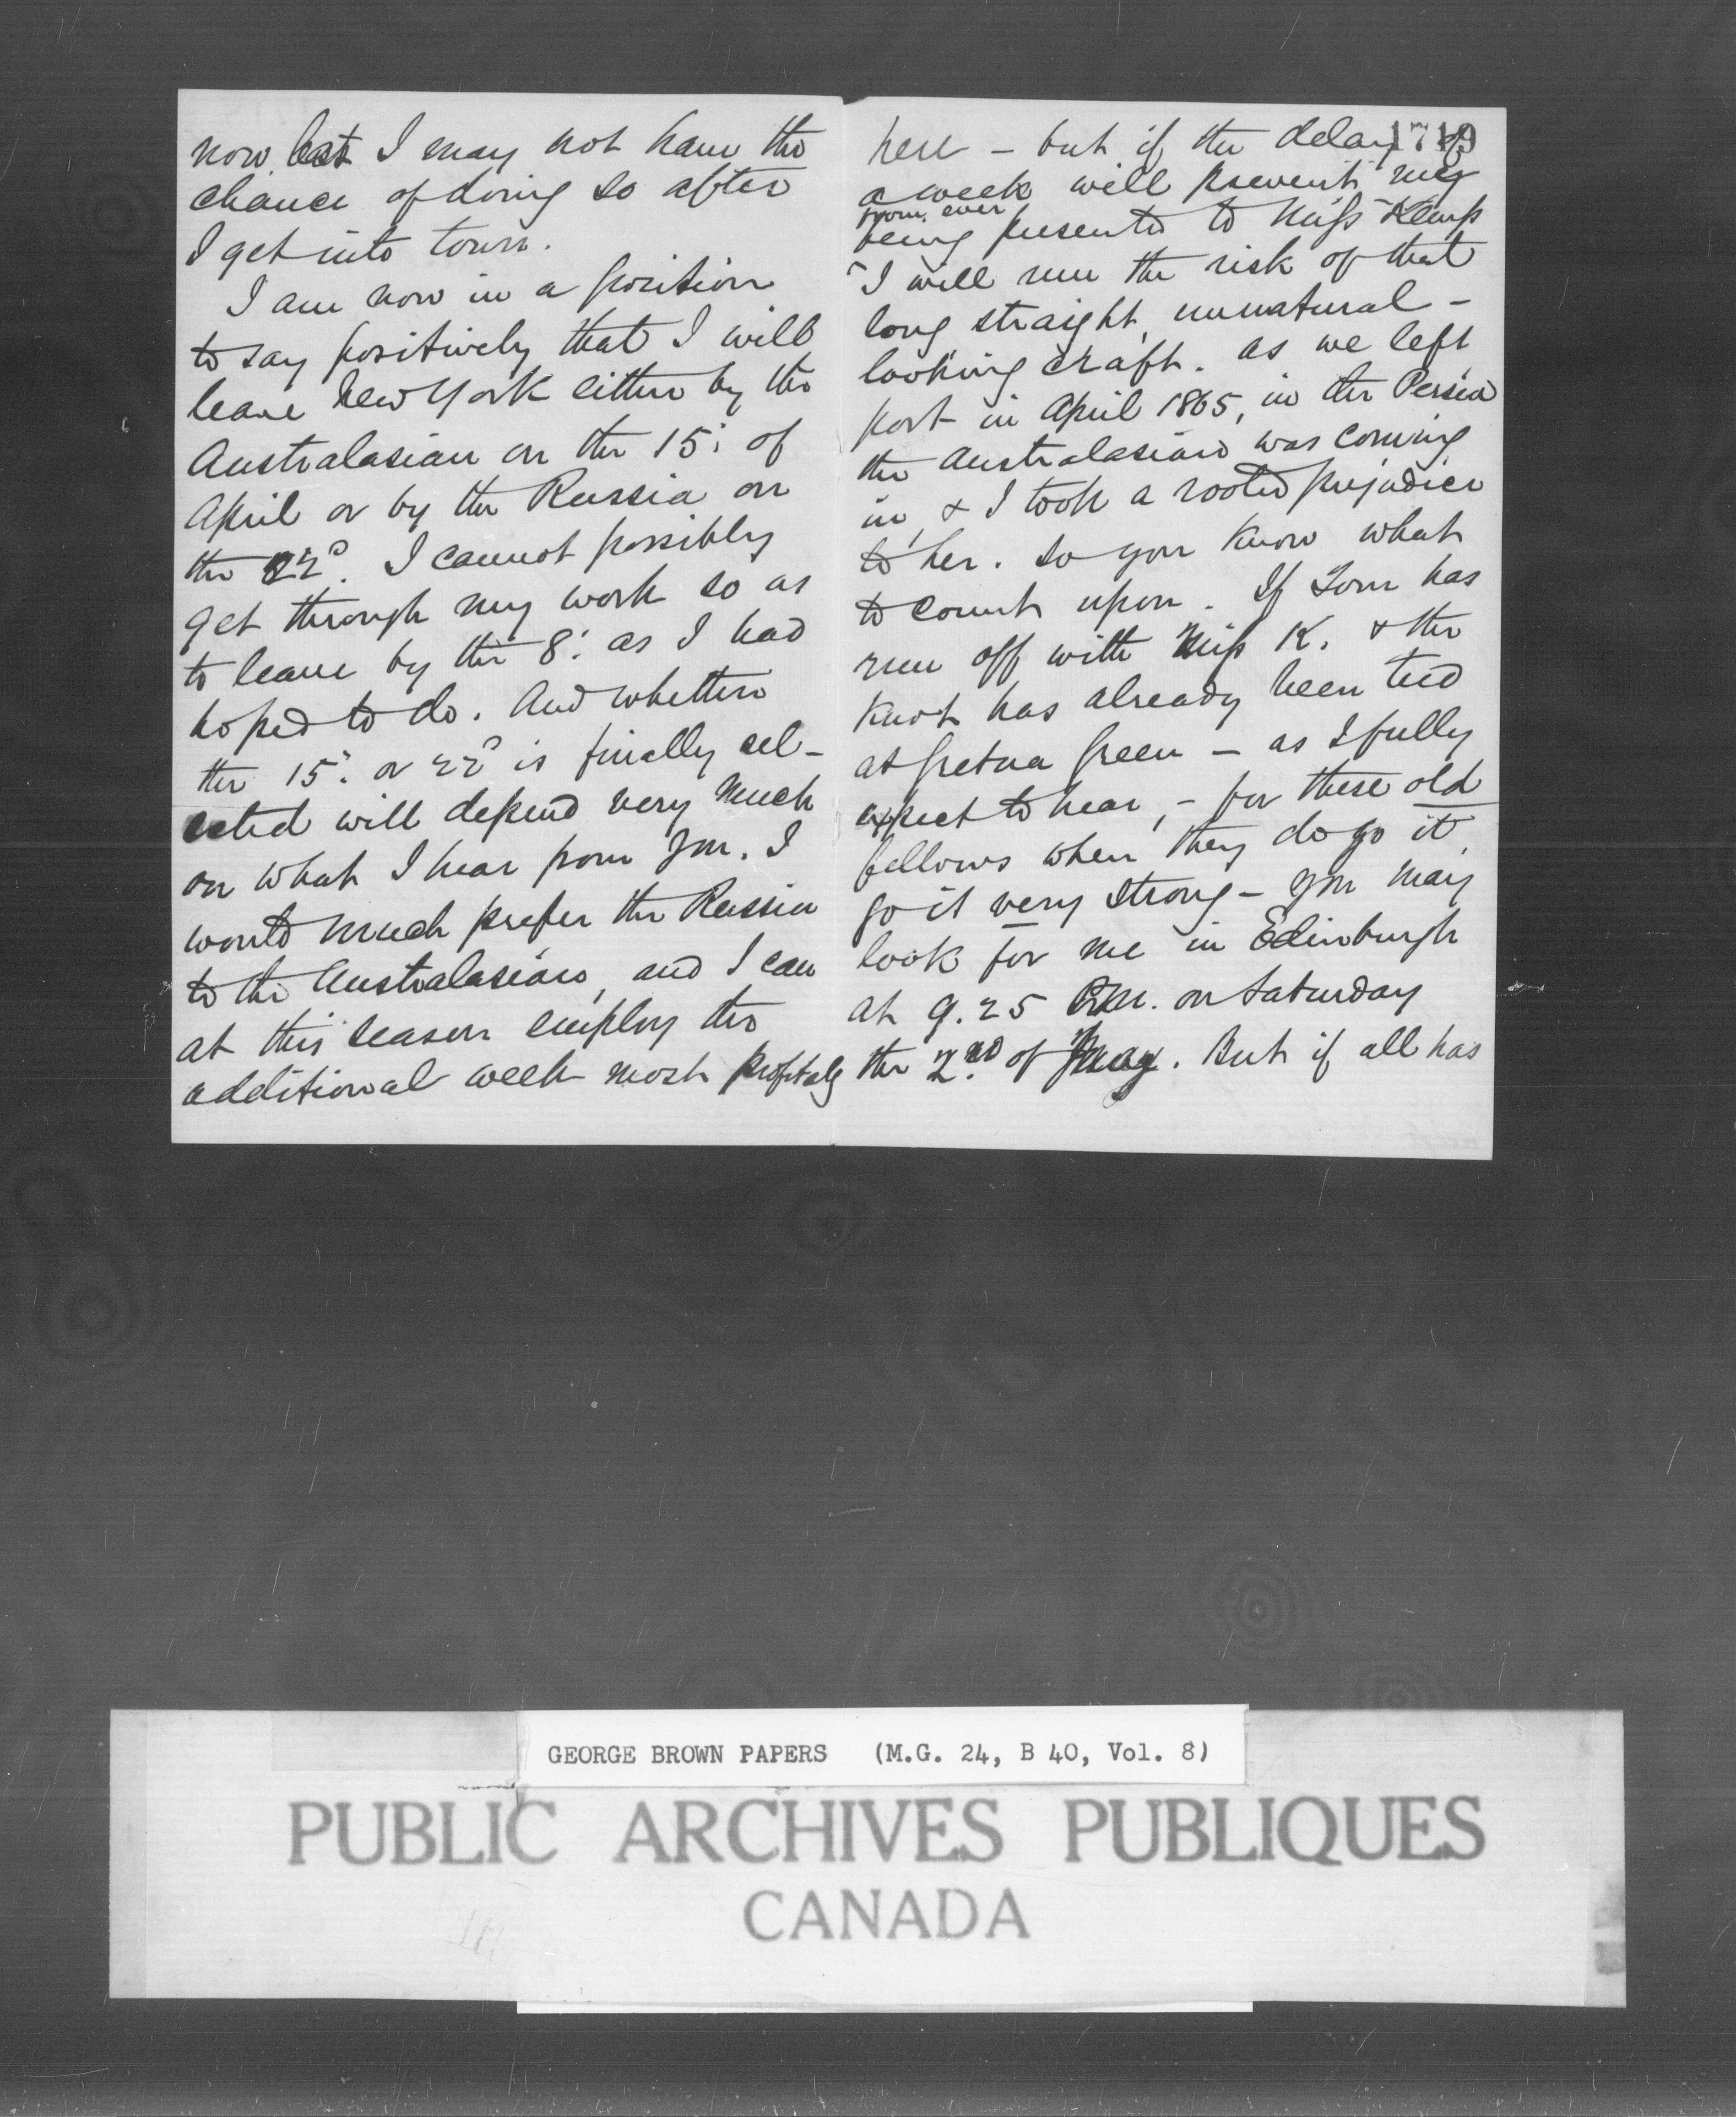 now lest I may not have the
chance of doing so after
I get into town.
I am now in a position
to say positively that I will
leave New York either by the
Australasian on the 15: of
April or by the Russia on
the 22d. I cannot possibly
get through my work so as
to leave by the 8: as I had
hoped to do. And whether
the 15: or 22d is finally sel-
ected will depend very much
on what I hear from you. I
would much prefer the Russia
to the Australasian, and I can
at this season employ the
additional week most profitaby
1719
here - but if the delay of
a week will prevent my
from ever
being presented to Miss Kemp
I will run the risk of that
long straight, unnatural-
looking craft. As we left
port in April 1865, in the Persia
the Australasian was coming
in, & I took a rooted prejudice
to her. So you know what
to count upon. If Tom has
run off with Miss K. & the
knot has already been tied
at Gretna Green - as I fully
expect to hear, - for these old
fellows when they do go it,
go it very strong - you may
look for me in Edinburgh
at 9.25 P.M. on Saturday
the 2nd of May. But if all has
GEORGE BROWN PAPERS (M.G. 24, B 40, Vol. 8)
PUBLIC ARCHIVES PUBLIQUES
CANADA